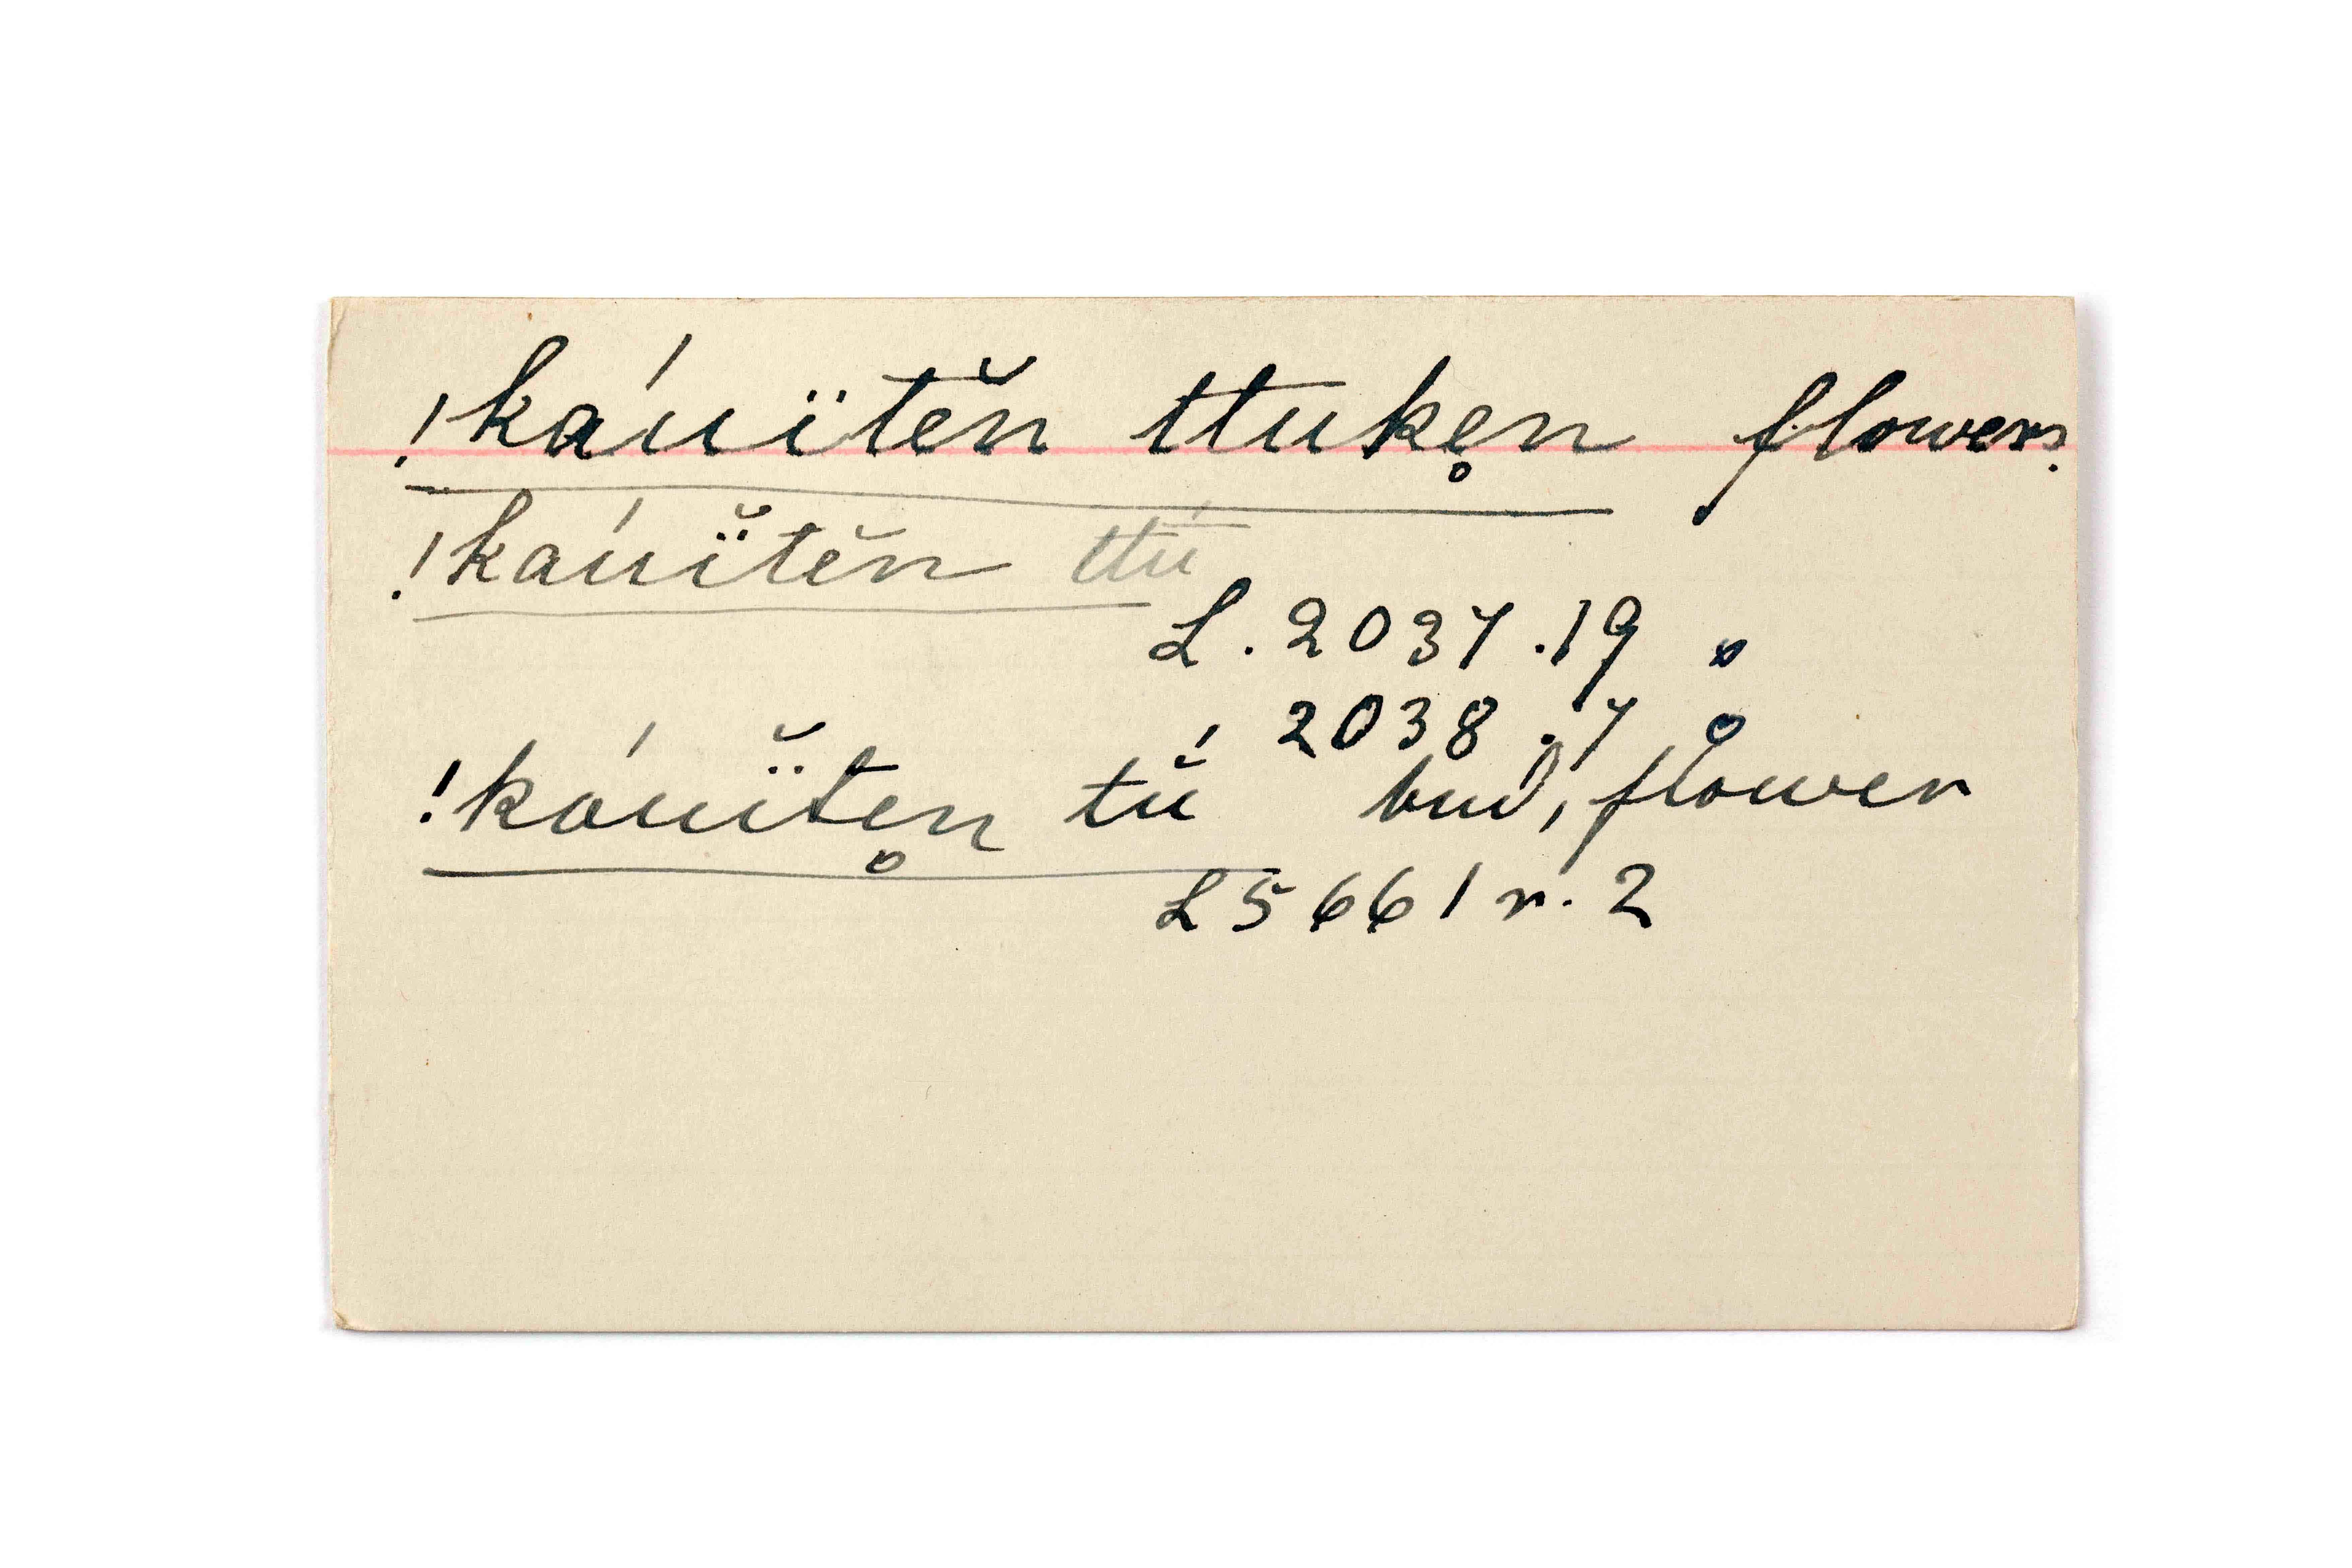 !káuïtĕn ttuken̥ flowers.
!káuï̆tĕn ttú
L. 2037.19 o
2038.7 o
!káuï̆te̥n tú bud, flower
L 5661 r. 2